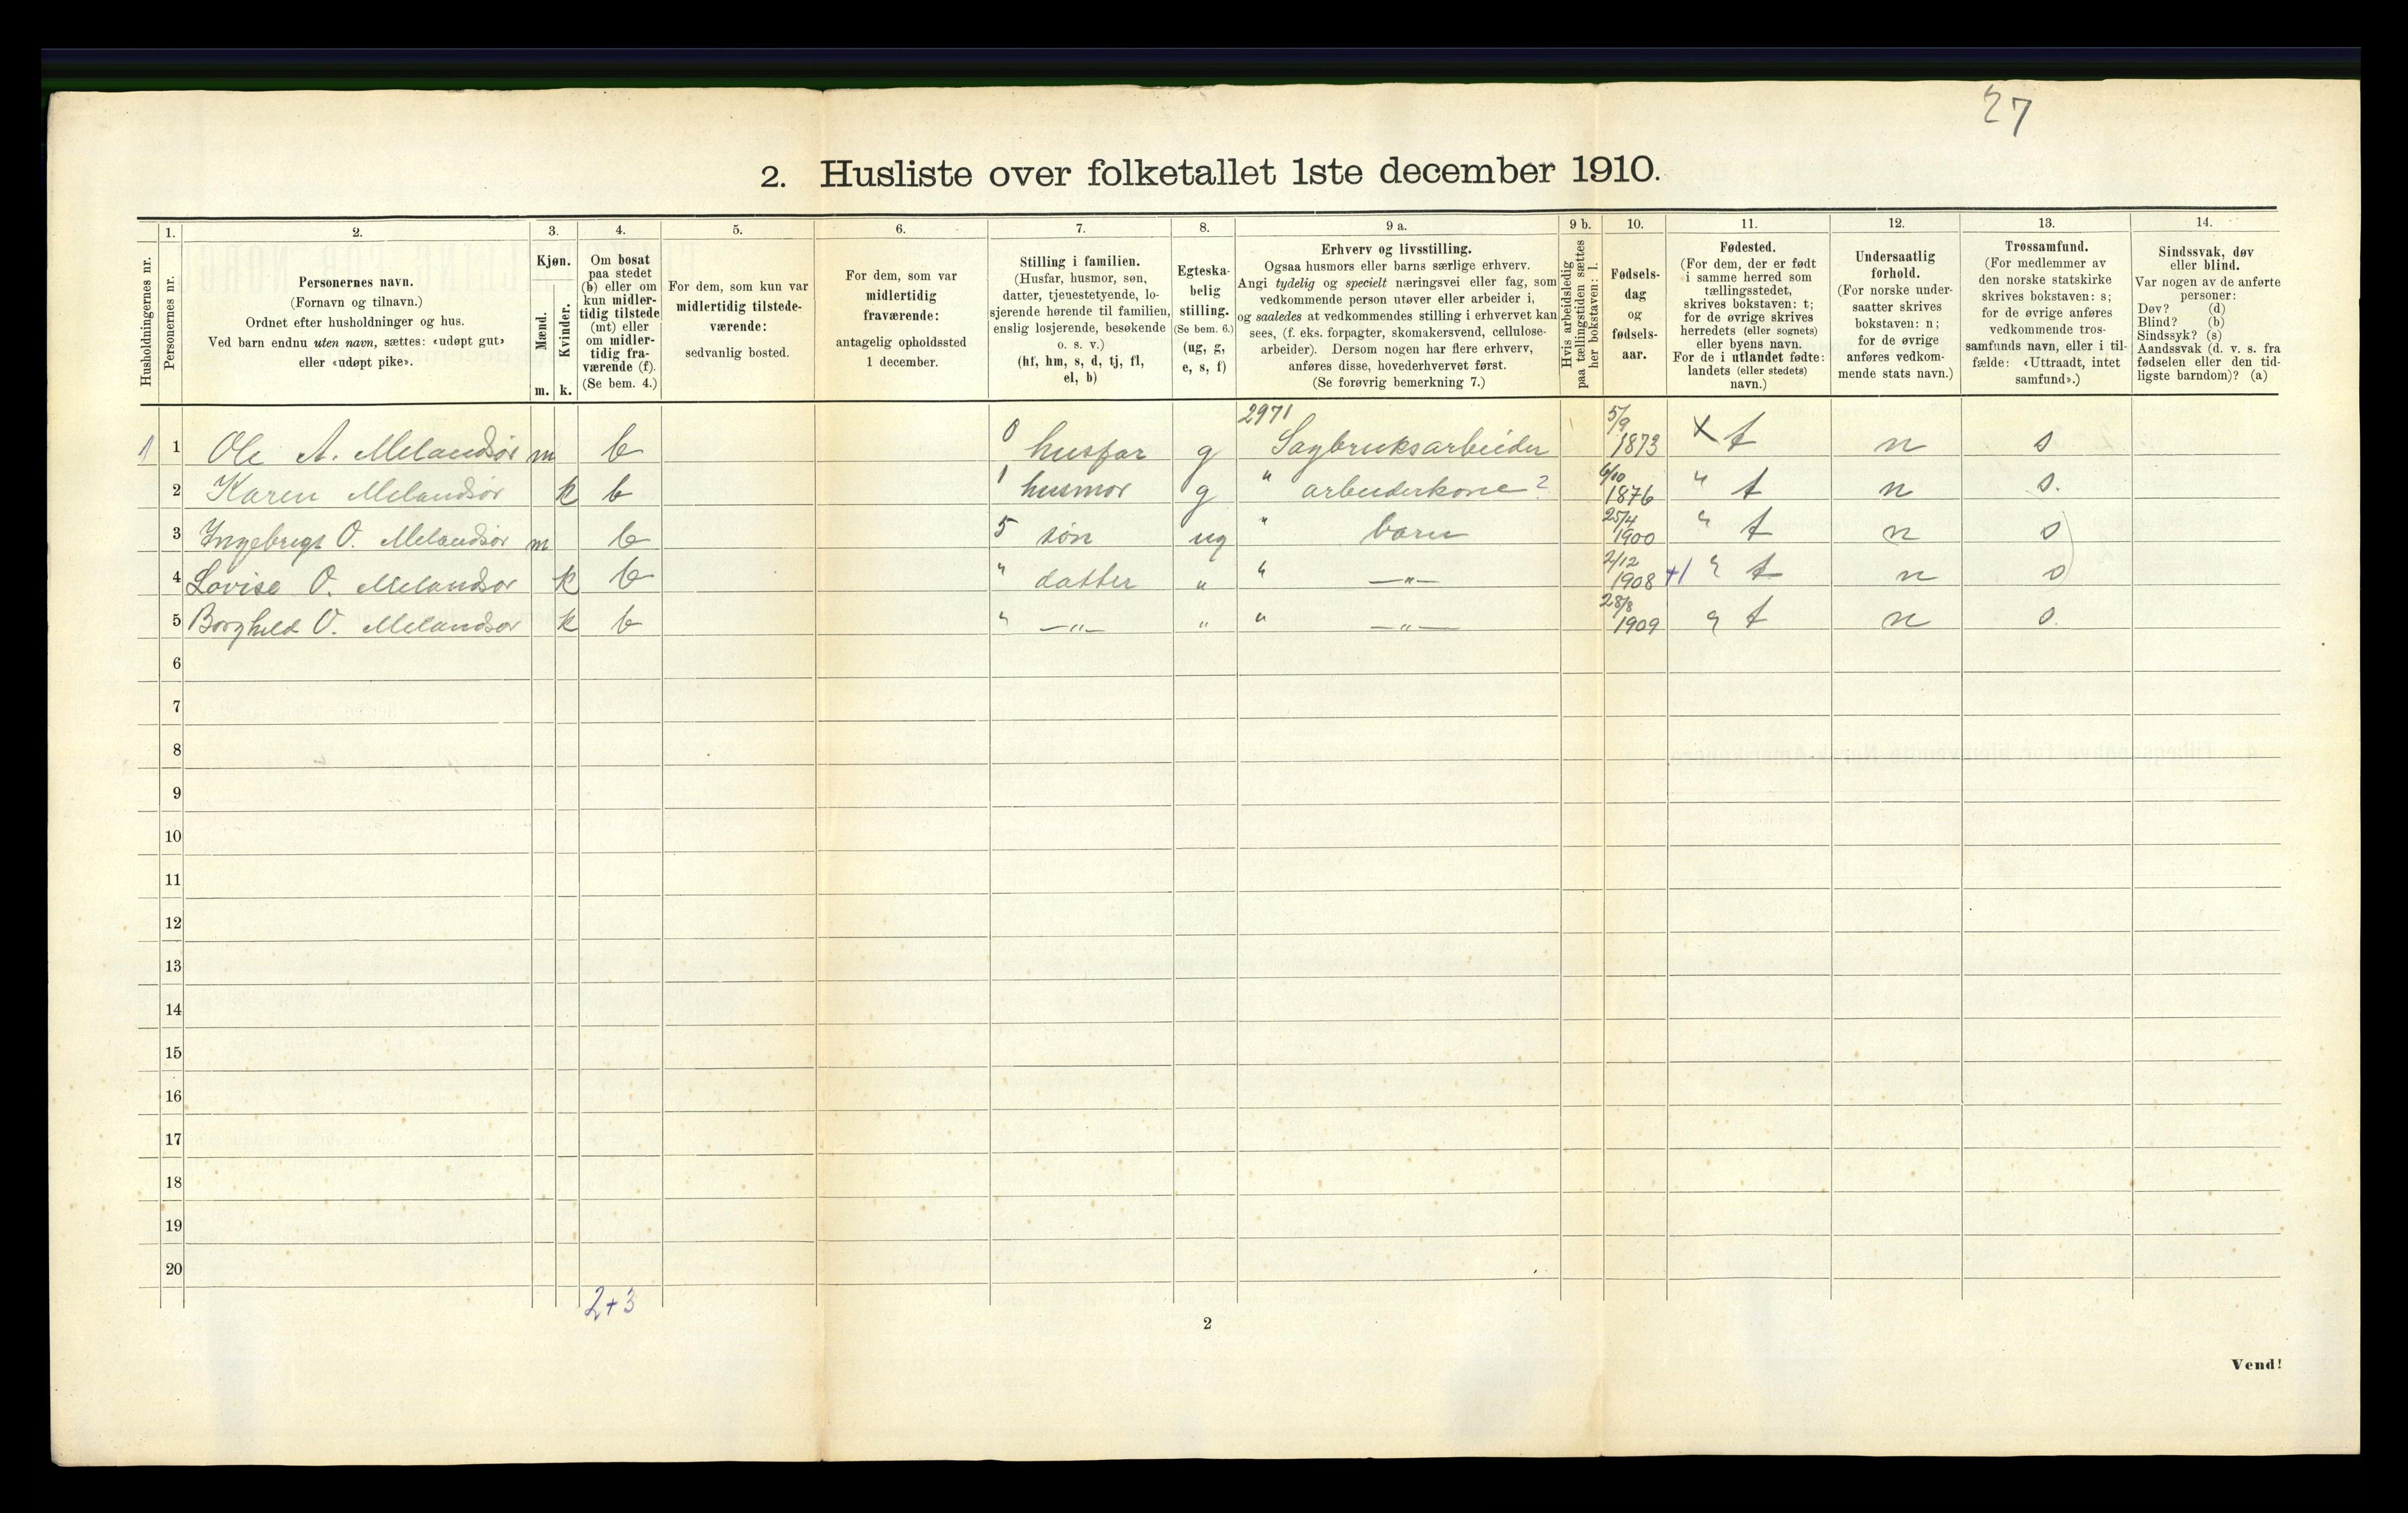 27
2. Husliste over folketallet 1ste december 1910.
Husholdningernes nr.
1.
Personernes nr.
2.
Personernes navn.
(Fornavn og tilnavn.)
Ordnet efter husholdninger og hus.
Ved barn endnu uten navn, sættes: «udøpt gut»
eller «udøpt pike».
3.
Kjøn.
Mænd.
m.
Kvinder.
k.
4.
Om bosat
paa stedet
(b) eller om
kun midler-
tidig tilstede
(mt) eller
om midler-
tidig fra-
værende (f).
(Se bem. 4.)
5.
For dem, som kun var
midlertidig tilstede-
værende:
sedvanlig bosted.
6.
For dem, som var
midlertidig
fraværende:
antagelig opholdssted
1 december.
7.
Stilling i familien.
(Husfar, husmor, søn,
datter, tjenestetyende, lo-
sjerende hørende til familien,
enslig losjerende, besøkende
o. s. v.)
(hf, hm, s, d, tj, fl,
el, b)
8.
Egteska-
belig
stilling.
(Se bem. 6.)
(ug, g,
e, s, f)
9 a.
Erhverv og livsstilling.
Ogsaa husmors eller barns særlige erhverv.
Angi tydelig og specielt næringsvei eller fag, som
vedkommende person utøver eller arbeider i,
og saaledes at vedkommendes stilling i erhvervet kan
sees, (f. eks. forpagter, skomakersvend, cellulose-
arbeider). Dersom nogen har flere erhverv,
anføres disse, hovederhvervet først.
(Se forøvrig bemerkning 7.)
9 b.
Hvis arbeidsledig
paa tællingstiden sættes
her bokstaven: l.
10.
Fødsels-
dag
og
fødsels-
aar.
11.
Fødested.
(For dem, der er født
i samme herred som
tællingsstedet,
skrives bokstaven: t;
for de øvrige skrives
herredets (eller sognets)
eller byens navn.
For de i utlandet fødte:
landets (eller stedets)
navn.)
12.
Undersaatlig
forhold.
(For norske under-
saatter skrives
bokstaven: n;
for de øvrige
anføres vedkom-
mende stats navn.)
13.
Trossamfund.
(For medlemmer av
den norske statskirke
skrives bokstaven: s;
for de øvrige anføres
vedkommende tros-
samfunds navn, eller i til-
fælde: «Uttraadt, intet
samfund».)
14.
Sindssvak, døv
eller blind.
Var nogen av de anførte
personer:
Døv? (d)
Blind? (b)
Sindssyk? (s)
Aandssvak (d. v. s. fra
fødselen eller den tid-
ligste barndom)? (a)
1 1 Ole A. Melandsør m b 0 husfar g 2971 Sagbruksarbeider 5/9 1873 x t n s
2 Karen Melandsør k b 1 husmor g " arbeiderkone ? 6/10 1876 " t n s.
3 Ingebrigt O. Melandsør m b 5 søn ug " barn 25/4 1900 " t n s
4 Lovise O. Melandsør k b " datter " " —"— 2/12 1908 +1 " t n s
5 Borghild O. Melandsør k b " —"— " " —"— 28/8 1909 " t n s.
6
7
8
9
10
11
12
13
14
15
16
17
18
19
20
2+3
2
Vend!